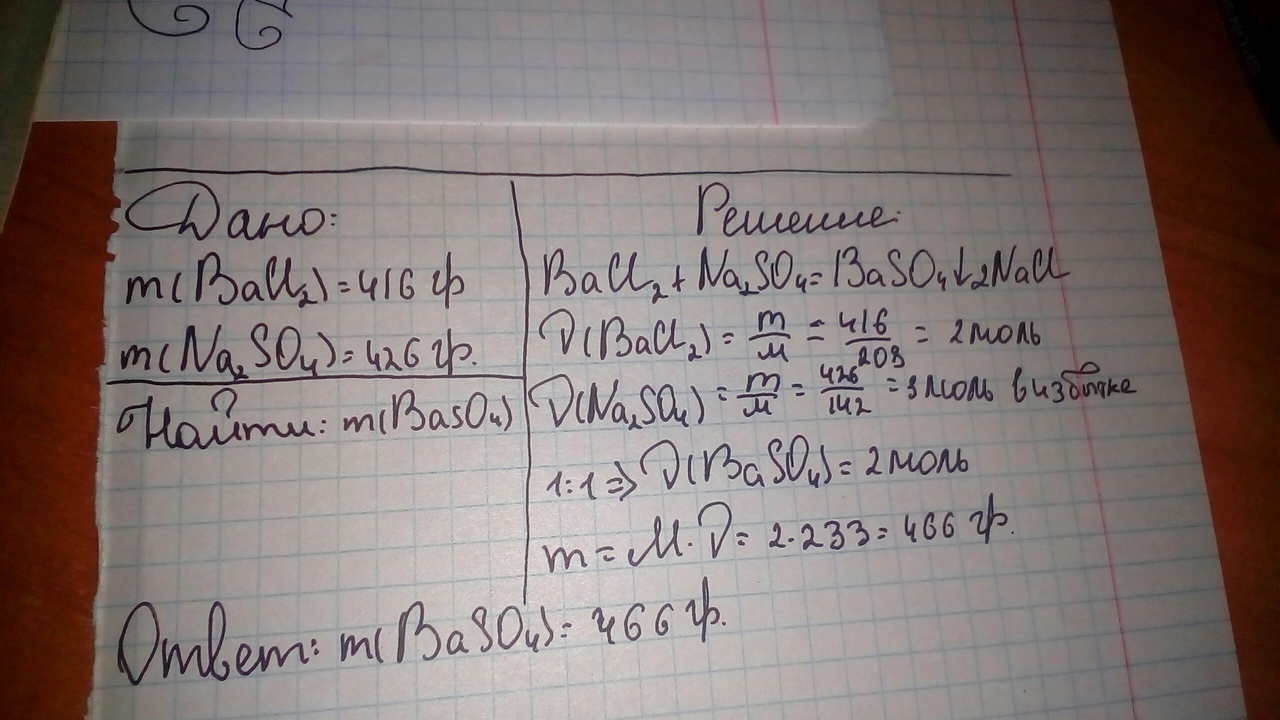 Дано:
m(BaCl₂)=416 гр
m(Na₂SO₄)=426 гр.
Найти: m(BaSO₄)
Решение:
BaCl₂+Na₂SO₄=BaSO₄↓2NaCl
ν(BaCl₂)=m/M=416/208=2моль
ν(Na₂SO₄)=m/M=426/142=3моль визбытке
1:1=>ν(BaSO₄)=2моль
m=M·ν=2·233=466 гр.
Ответ: m(BaSO₄)=466 гр.